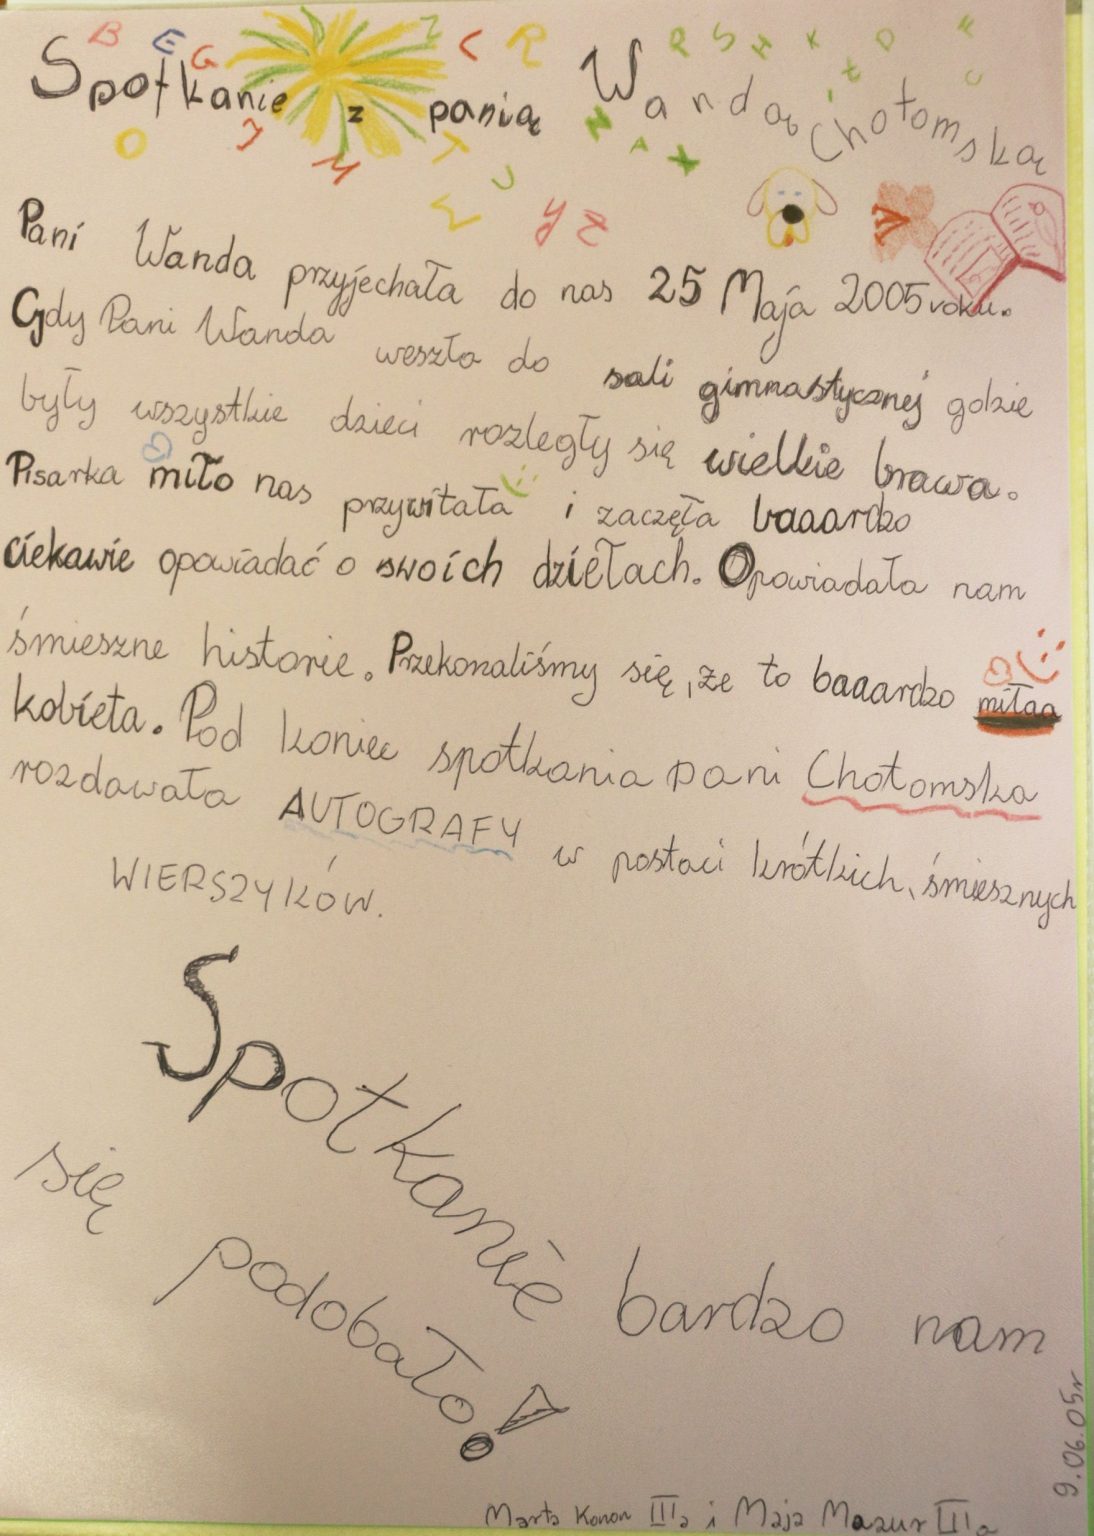 B E G Z C R P S H K D F
Spotkanie z panią Wandą Chotomską
O J M T U W Y Z N A X t C
Pani Wanda przyjechała do nas 25 Maja 2005 roku.
Gdy Pani Wanda weszła do sali gimnastycznej gdzie
były wszystkie dzieci rozległy się wielkie brawa.
Pisarka miło nas przywitała i zaczęła baaardzo
ciekawie opowiadać o swoich dziełach. Opowiadała nam
śmieszne historie. Przekonaliśmy się, że to baaardzo miłaa
kobieta. Pod koniec spotkania pani Chotomska
rozdawała AUTOGRAFY w postaci krótkich, śmiesznych
WIERSZYKÓW.
Spotkanie bardzo nam
się podobało!
9.06.05r
Marta Konon IIIa i Maja Mazur IIIa